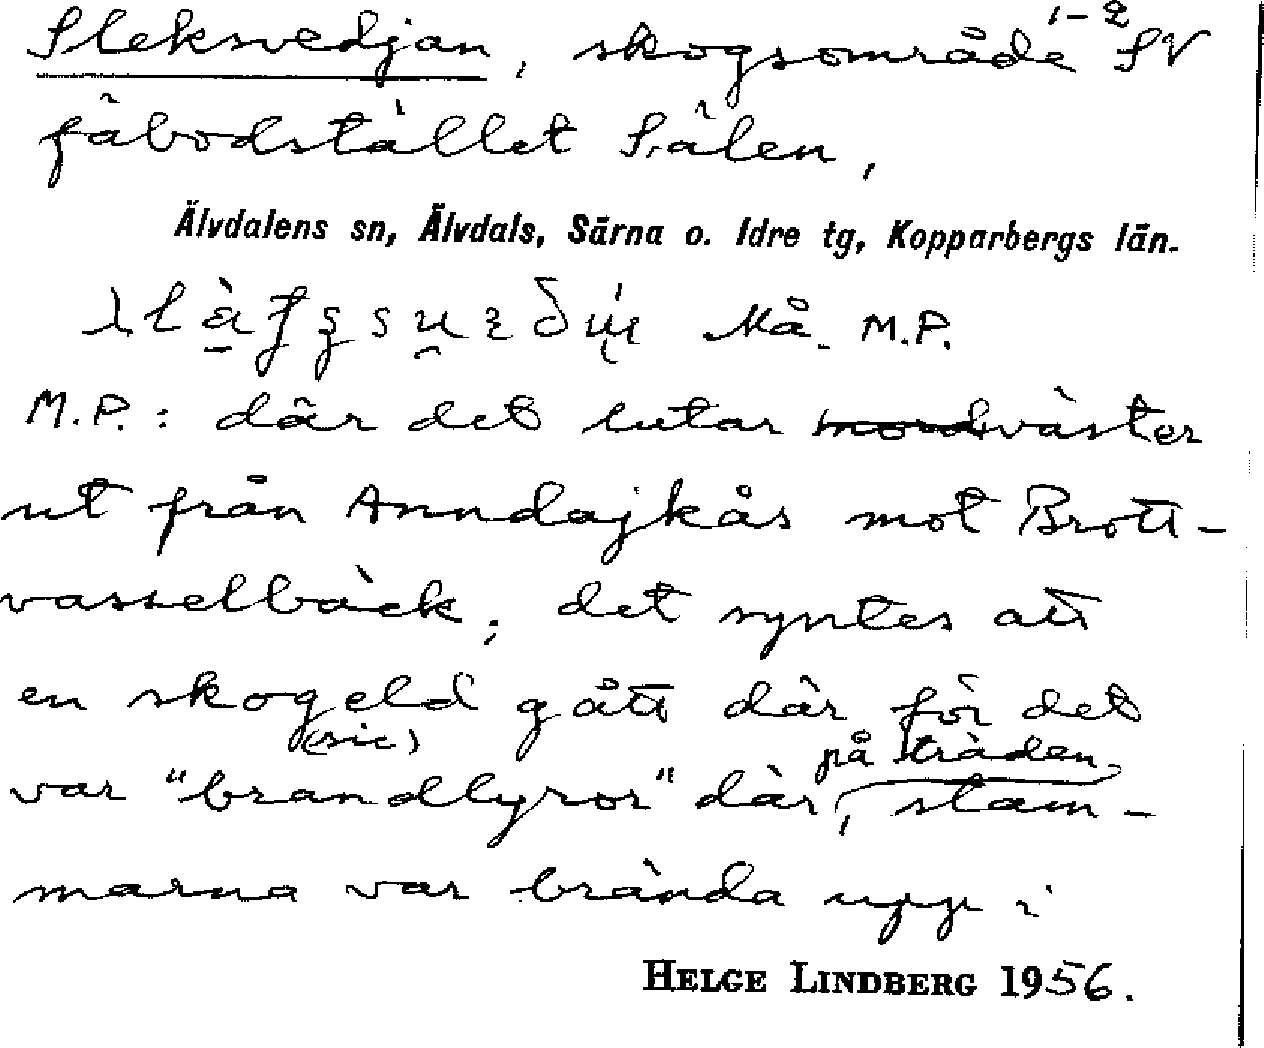 Sleksvedjan, skogsområde 1-2 SV
fäbodstället Sälen,
Älvdalens sn, Älvdals, Särna o. Idre tg, Kopparbergs län.
Må. M.P.
M.P.: där det lutar nordväster
ut från Anndajkås mot Brott-
vasselbäck, det syntes att
en skogeld gått där för det
(sic)
var "brandlyror" där, på träden, stam-
marna var brända upp i
HELGE LINDBERG 1956.